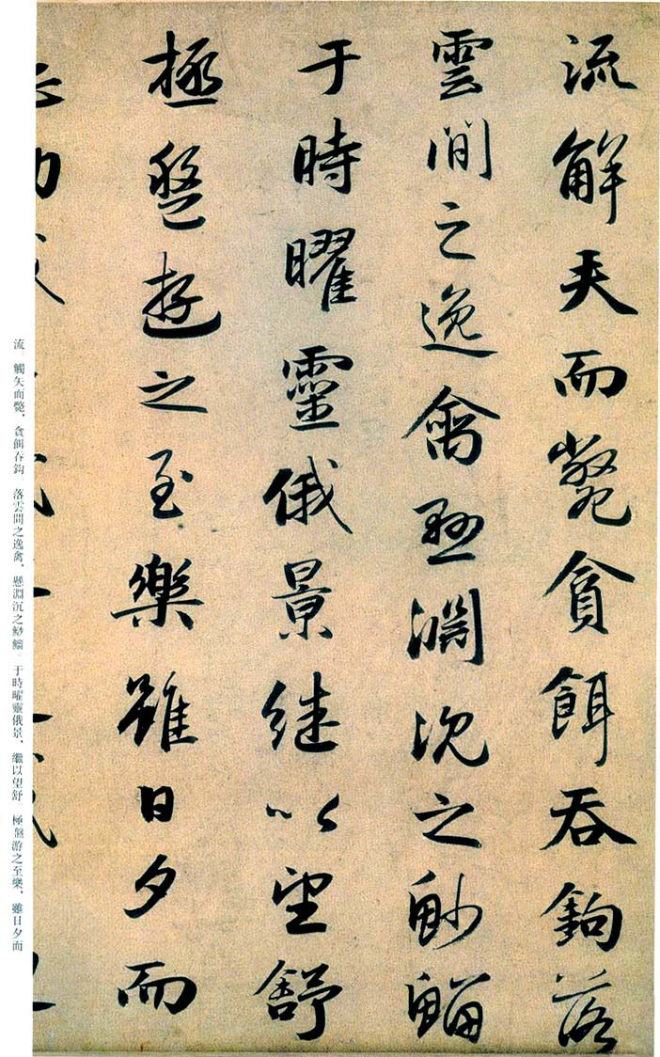 流觧矢而斃貪餌吞鉤落
雲間之逸禽懸淵沉之魦鰡
于時曜靈俄景継以望舒
極盤遊之至樂雖日夕而
流 觸矢而斃、貪餌吞鈎 落雲間之逸禽、懸淵沉之魦鰡 于時曜靈俄景、繼以望舒 極盤游之至樂、雖日夕而